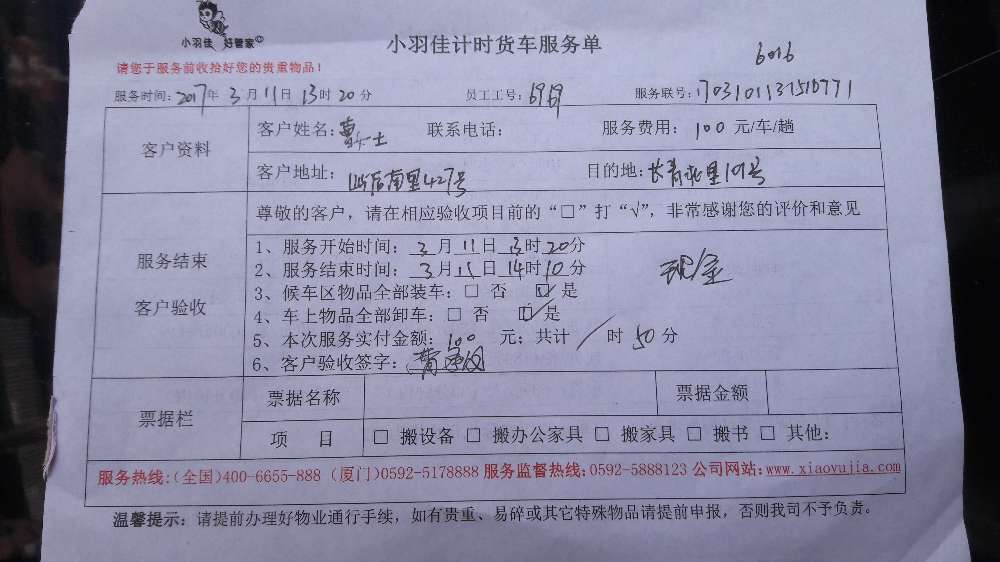 小羽佳 好管家
小羽佳计时货车服务单
6016
请您于服务前收拾好您的贵重物品！
服务时间：2017年 3月 11日 13时 20分 员工工号：6969 服务联号：170310113151077​1
客户资料
客户姓名： 女士 联系电话： 服务费用：100 元/车/趟
客户地址： 后南里427号 目的地：长青北里101号
服务结束
客户验收
尊敬的客户，请在相应验收项目前的“□”打“√”，非常感谢您的评价和意见
1、服务开始时间：3月 11日 13时 20分
2、服务结束时间：3月 15日 14时 10分
现金
3、候车区物品全部装车：□ 否 ☑ 是
4、车上物品全部卸车：□ 否 ☑ 是
5、本次服务实付金额：100 元；共计 / 时 50分
6、客户验收签字：
票据栏
票据名称 票据金额
项 目 □ 搬设备 □ 搬办公家具 □ 搬家具 □ 搬书 □ 其他：
服务热线：(全国)400-6655-888 (厦门)0592-5178888 服务监督热线：0592-5888123 公司网站：www.xiaoyujia.com
温馨提示：请提前办理好物业通行手续，如有贵重、易碎或其它特殊物品请提前申报，否则我司不予负责。